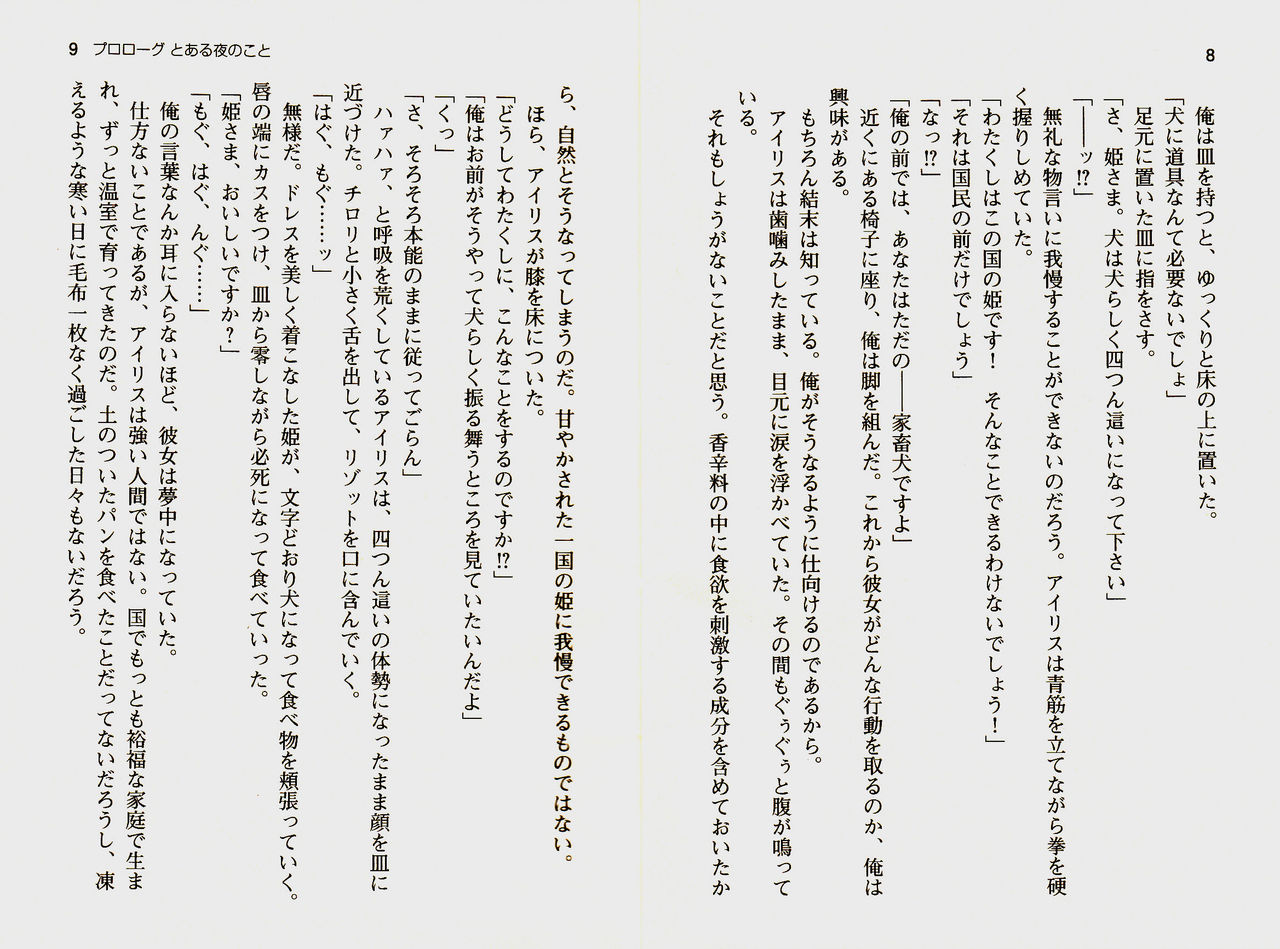 8
俺は皿を持つと、ゆっくりと床の上に置いた。
「犬に道具なんて必要ないでしょ」
足元に置いた皿に指をさす。
「さ、姫さま。犬は犬らしく四つん這いになって下さい」
「――ッ!?」
無礼な物言いに我慢することができないのだろう。アイリスは青筋を立てながら拳を硬
く握りしめていた。
「わたくしはこの国の姫です！　そんなことできるわけないでしょう！」
「それは国民の前だけでしょう」
「なっ!?」
「俺の前では、あなたはただの――家畜犬ですよ」
近くにある椅子に座り、俺は脚を組んだ。これから彼女がどんな行動を取るのか、俺は
興味がある。
もちろん結末は知っている。俺がそうなるように仕向けるのであるから。
アイリスは歯噛みしたまま、目元に涙を浮かべていた。その間もぐぅぐぅと腹が鳴って
いる。
それもしょうがないことだと思う。香辛料の中に食欲を刺激する成分を含めておいたか
9　プロローグ とある夜のこと
ら、自然とそうなってしまうのだ。甘やかされた一国の姫に我慢できるものではない。
ほら、アイリスが膝を床についた。
「どうしてわたくしに、こんなことをするのですか!?」
「俺はお前がそうやって犬らしく振る舞うところを見ていたいんだよ」
「くっ」
「さ、そろそろ本能のままに従ってごらん」
ハァハァ、と呼吸を荒くしているアイリスは、四つん這いの体勢になったまま顔を皿に
近づけた。チロリと小さく舌を出して、リゾットを口に含んでいく。
「はぐ、もぐ……ッ」
無様だ。ドレスを美しく着こなした姫が、文字どおり犬になって食べ物を頬張っていく。
唇の端にカスをつけ、皿から零しながら必死になって食べていった。
「姫さま、おいしいですか？」
「もぐ、はぐ、んぐ……」
俺の言葉なんか耳に入らないほど、彼女は夢中になっていた。
仕方ないことであるが、アイリスは強い人間ではない。国でもっとも裕福な家庭で生ま
れ、ずっと温室で育ってきたのだ。土のついたパンを食べたことだってないだろうし、凍
えるような寒い日に毛布一枚なく過ごした日々もないだろう。